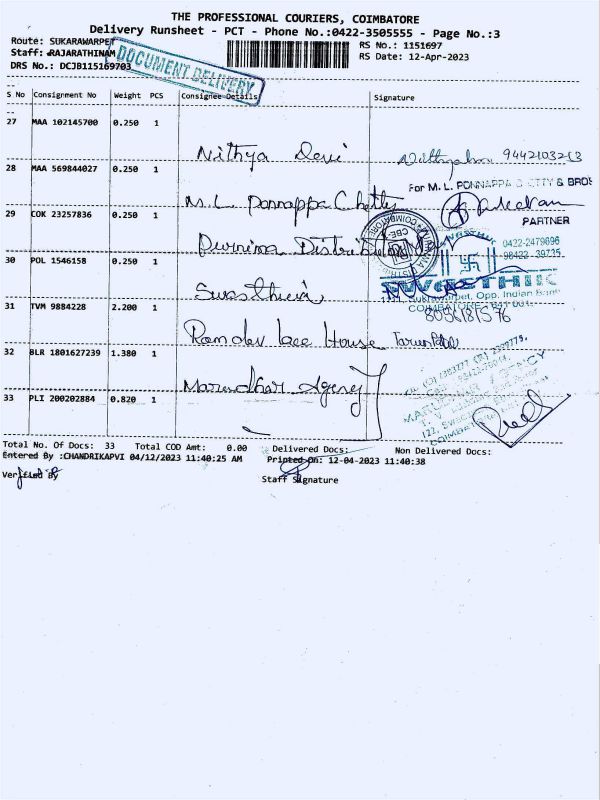 THE PROFESSIONAL COURIERS, COIMBATORE
Delivery Runsheet - PCT - Phone No.:0422-3505555 - Page No.:3
Route: SUKARAWARPET
RS No.: 1151697
Staff: RAJARATHINAM
RS Date: 12-Apr-2023
DRS No.: DCJB115169703
DOCUMENT DELIVERY
S No Consignment No Weight PCS Consignee Details Signature
27 MAA 102145700 0.250 1
Nithya Devi 9442103213
28 MAA 569844027 0.250 1
For M. L. PONNAPPA CHETTY & BROS
M. L. Ponnappa Chetty
29 COK 23257836 0.250 1
PARTNER
Purnima
0422-2479696
30 POL 1546158 0.250 1
98422-39735
Swasthik
SWASTHIK
Sukrawarpet, Opp. Indian Bank
31 TVM 9884228 2.200 1
COIMBATORE - 641 001.
Ramdev lace House
32 BLR 1801627239 1.380 1
Marudhar Agency
33 PLI 200202884 0.820 1
Total No. Of Docs: 33 Total COD Amt: 0.00 Delivered Docs: Non Delivered Docs:
Entered By :CHANDRIKAPVI 04/12/2023 11:40:25 AM Printed On: 12-04-2023 11:40:38
Verified By
Staff Signature